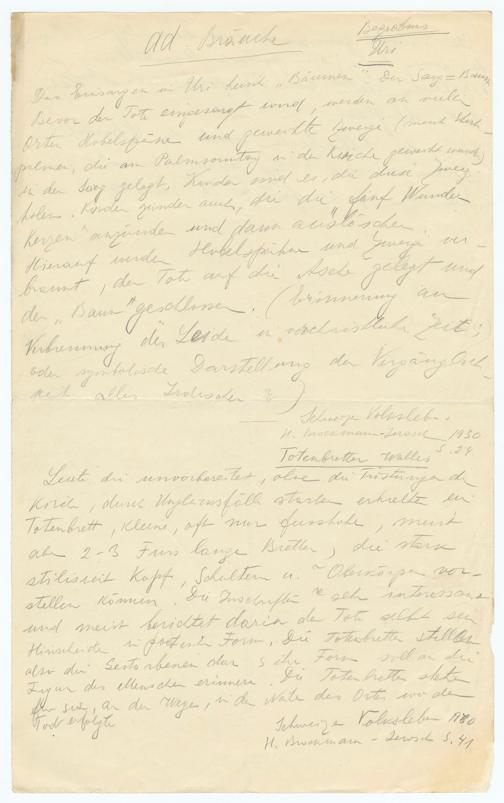 ad. Bräuche
Begräbnis
Uri
Das Einsargen in Uri heisst „Bäumen" Der Sarg = Baum
Bevor der Tote eingesargt wird, werden an vielen
Orten Hobelspäne und geweihte Zweige (meist Stech-
palmen, die am Palmsonntag in der Kirche geweiht wurden)
in den Sarg gelegt, Kinder sind es, die diese Zweige
holen. Kinder zünden auch, die die fünf Wunden
Kerzen" anzünden und dann auslöschen.
Hierauf werden Hobelspähne und Zweige ver-
brannt, der Tote auf die Asche gelegt und
der „Baum" geschlossen. (Erinnerung an
Verbrennung der Leiche in vorchristlicher Zeit;
oder symbolische Darstellung der Vergänglich-
keit alles Irdischen
Schweizer Volksleben
H. Brockmann-Jerosch 1930
S. 24
Totenbretter Wallis
Leute die unvorbereitet, ohne die Tröstungen der
Kirche, durch Unglücksfälle starben erhielten ein
Totenbrett, Kleine, oft nur fusshohe, meist
aber 2-3 Fuss lange Bretter, die stark
stilisiert Kopf, Schultern u. Oberkörper vor-
stellen können. Die Inschriften sehr interessant
und meist berichtet darin der Tote selbst sein
Hinscheiden in poetischer Form. Die Totenbretter stellen
also die Gestorbenen dar, ihre Form soll an die
Figur des Menschen erinnern. Die Totenbretter stehen
für sich, an den Wegen, in der Nähe des Ortes, wo der
Tod erfolgte
Schweizer Volksleben
H. Brockmann-Jerosch S. 41